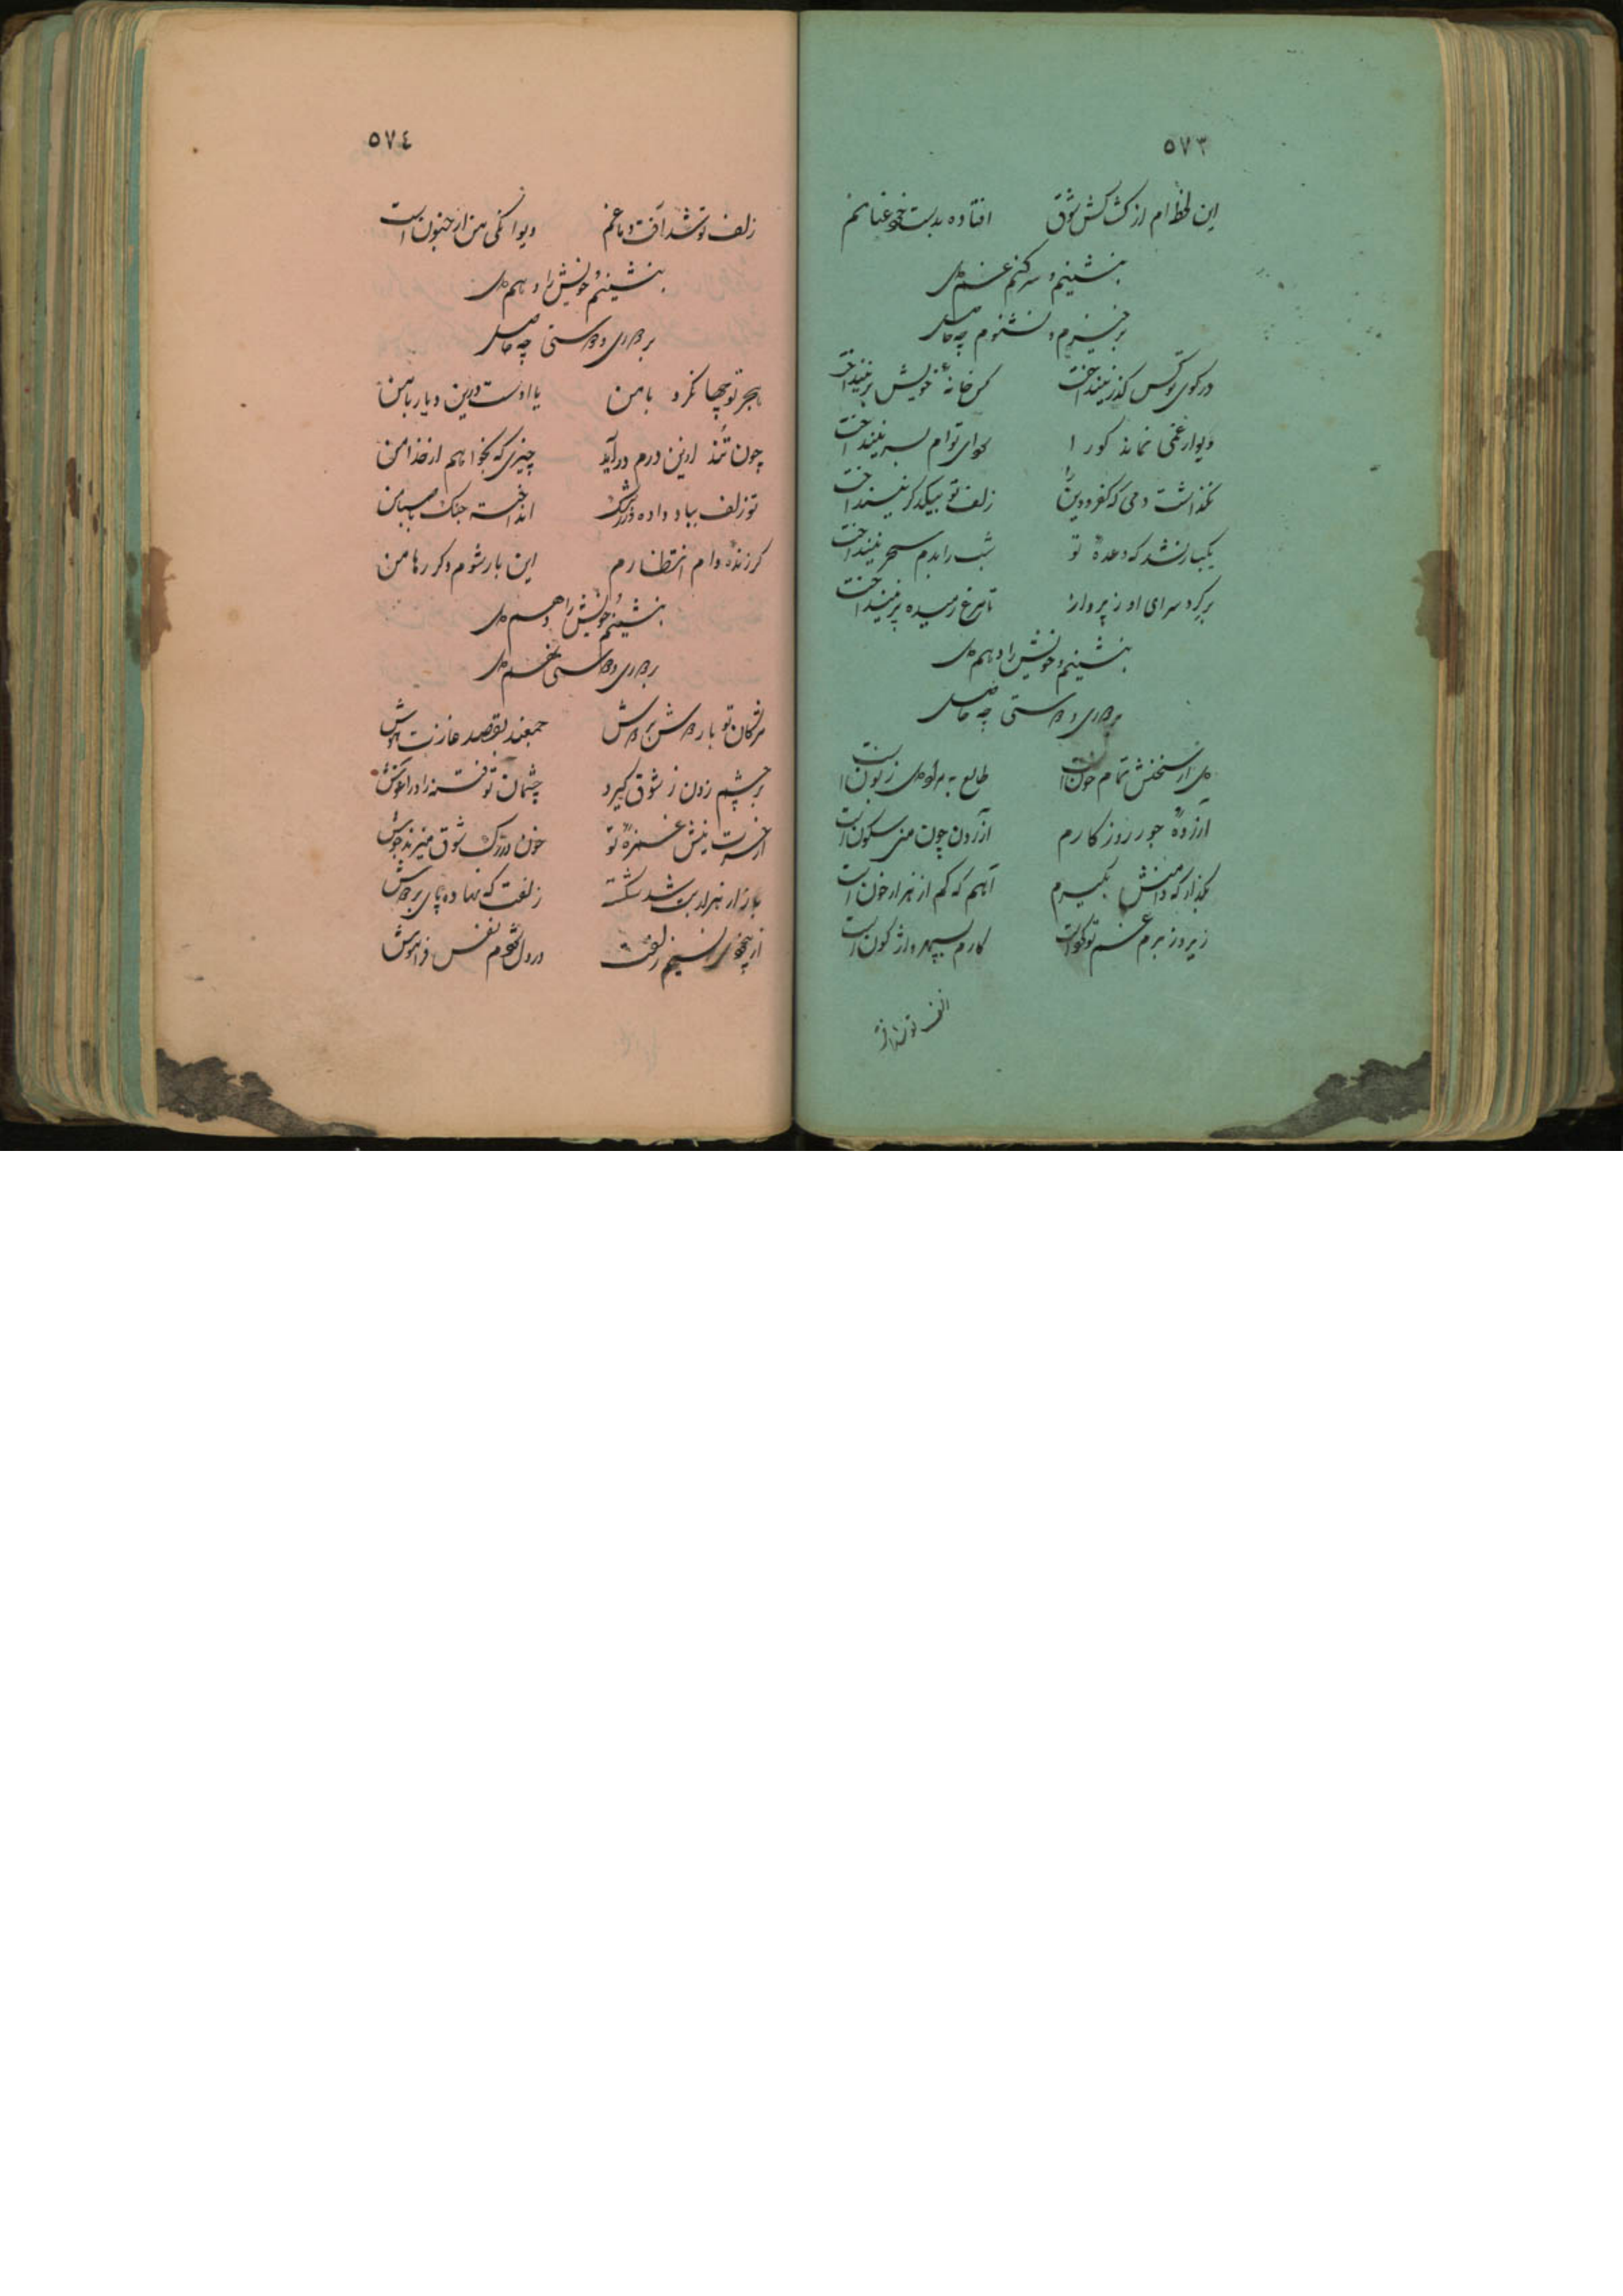 ٥٧٣
این لحظه ام از کشاکش شوق افتاده بدست غم عنانم
بنشینم و سر کنم غم دل
برخیزم و نشنوم چه حاصل
در کوی تو کس گذر نینداخت کس خانه خویش بر نینداخت
دیوار غمی نماند کور ا سودای توام بسر نینداخت
نگذاشت دمی که کفر و دین را زلف تو بیکدگر نینداخت
یکبار نشد که وعده تو شب را بدم سحر نینداخت
بر گرد سرای او ز پرواز تا مرغ رمیده پر نینداخت
بنشینم و خویش را دهم دل
بر دل و دوستی چه حاصل
دل از سخنش تمام خون است طالع به مراد دل زبون است
آزرده جور روزگارم
بگذار که دامنش بگیرم آهم که کم از هزار خون است
زیر و زبرم غم تو کرد است کارم بسپهر واژگون است
زلف تو شد آفت
٥٧٤
زلف تو شد آفت دماغم دیوانگی من از جنون است
بنشینم و خویش را دهم دل
بر دل و دوستی چه حاصل
هجر تو چها نکرد با من یا اوست درین دیار با من
چون تند ازین درم درآید چیزی که بخواهم از خدا من
تو زلف بباد داده در رشک انداخته جنگ با صبا من
گر زنده دام انتظارم این بار شوم دگر رها من
بنشینم و خویش را دهم دل
مژگان تو با ردوش بردوش جمعند بقصد غارت هوش
بر چشم زدن ز شوق گیرد چشمان تو فتنه را در آغوش
از حسرت نیش غمزه تو خون در رگ شوق میزند جوش
باز از هزار بت شد شکسته زلفت که نهاده پای بر دوش
از بیخودی نسیم زلفت در دل شودم نفس فراموش